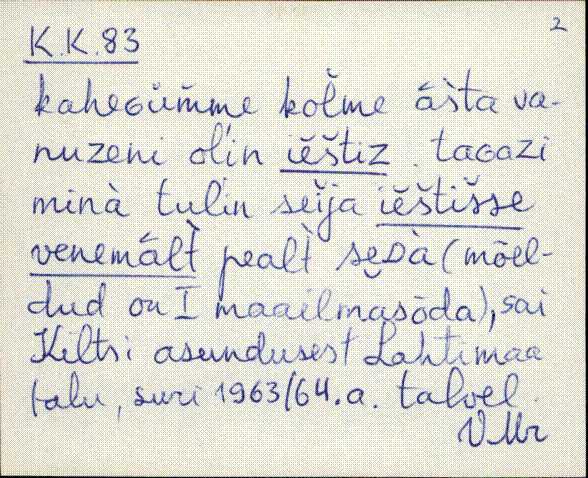 2
K.K. 83
kaheᴳŭm̆me kol̆me ášta va-
nuzeni ol'in iĕštiz. taɢazi
minà tulin seĭja iĕštišse
venemál̀t pealt̀ sĕᴅà (mõel-
dud on I maailmasõda), sai
Kiltsi asundusest Lahtimaa
talu, suri 1963/64.a. talvel.
VMr